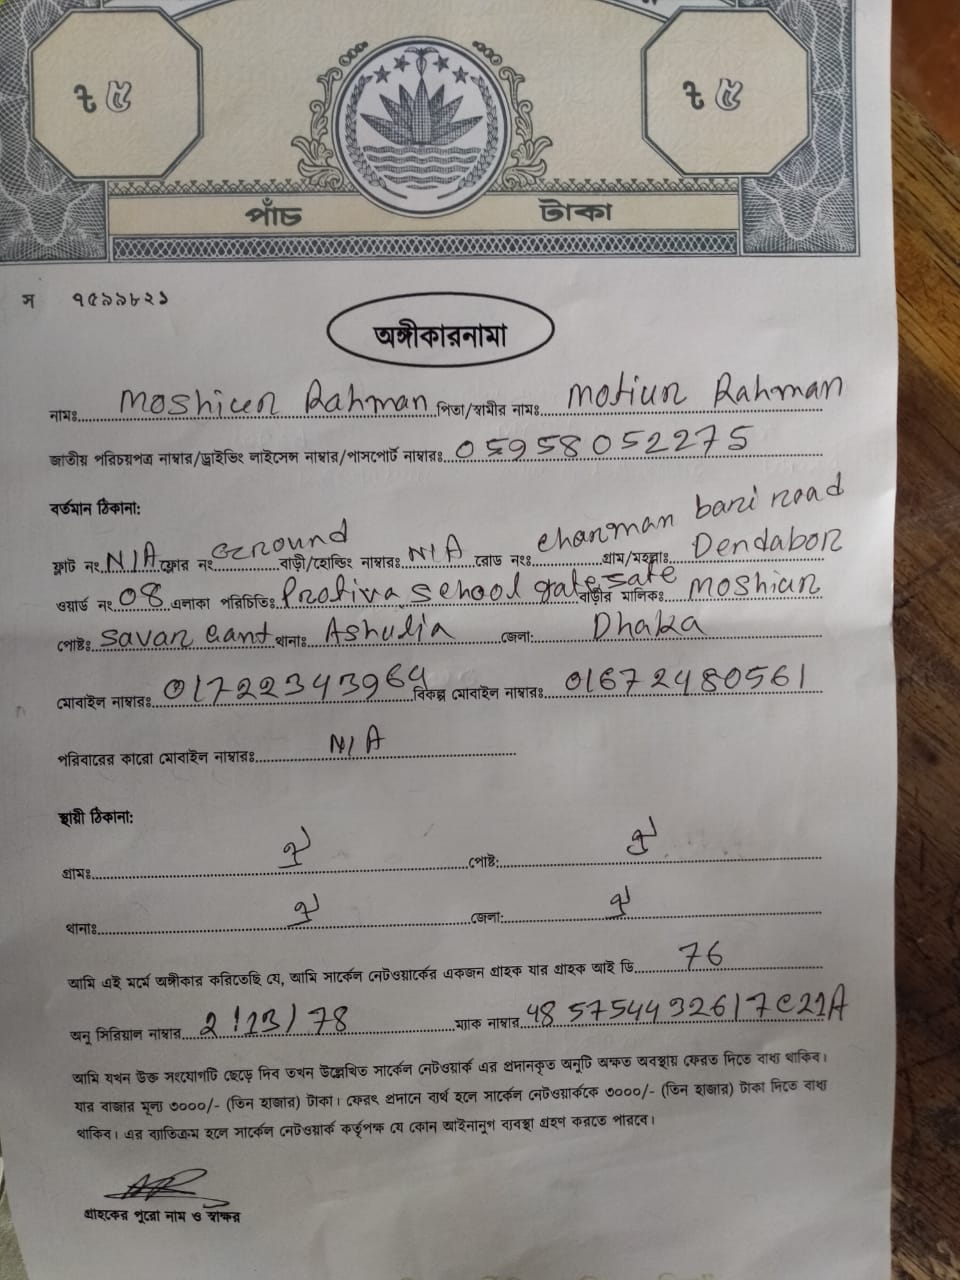 ৳ ৫ ৳ ৫
পাঁচ টাকা
স ৭৫৯৯৮২১
অঙ্গীকারনামা
নামঃ Moshiur Rahman পিতা/স্বামীর নামঃ Motiur Rahman
জাতীয় পরিচয়পত্র নাম্বার/ড্রাইভিং লাইসেন্স নাম্বার/পাসপোর্ট নাম্বারঃ 05958052275
বর্তমান ঠিকানা:
ফ্লাট নং N/A ফ্লোর নং Ground বাড়ী/হোল্ডিং নাম্বারঃ N/A রোড নংঃ charman bari road গ্রাম/মহল্লাঃ Dendabor
ওয়ার্ড নং 08 এলাকা পরিচিতিঃ Protiva school gate বাড়ীর মালিকঃ Moshiur
পোষ্টঃ Savar Cant থানাঃ Ashulia জেলা: Dhaka
মোবাইল নাম্বারঃ 01722343964 বিকল্প মোবাইল নাম্বারঃ 01672480561
পরিবারের কারো মোবাইল নাম্বারঃ N/A
স্থায়ী ঠিকানা:
গ্রামঃ পোষ্ট:
থানাঃ জেলা:
আমি এই মর্মে অঙ্গীকার করিতেছি যে, আমি সার্কেল নেটওয়ার্কের একজন গ্রাহক যার গ্রাহক আই ডি 76
অনু সিরিয়াল নাম্বার ম্যাক নাম্বার 485754432617C21A
আমি যখন উক্ত সংযোগটি ছেড়ে দিব তখন উল্লেখিত সার্কেল নেটওয়ার্ক এর প্রদানকৃত অনুটি অক্ষত অবস্থায় ফেরত দিতে বাধ্য থাকিব।
যার বাজার মূল্য ৩০০০/- (তিন হাজার) টাকা। ফেরৎ প্রদানে ব্যর্থ হলে সার্কেল নেটওয়ার্ককে ৩০০০/- (তিন হাজার) টাকা দিতে বাধ্য
থাকিব। এর ব্যতিক্রম হলে সার্কেল নেটওয়ার্ক কর্তৃপক্ষ যে কোন আইনানুগ ব্যবস্থা গ্রহণ করতে পারবে।
গ্রাহকের পুরো নাম ও স্বাক্ষর